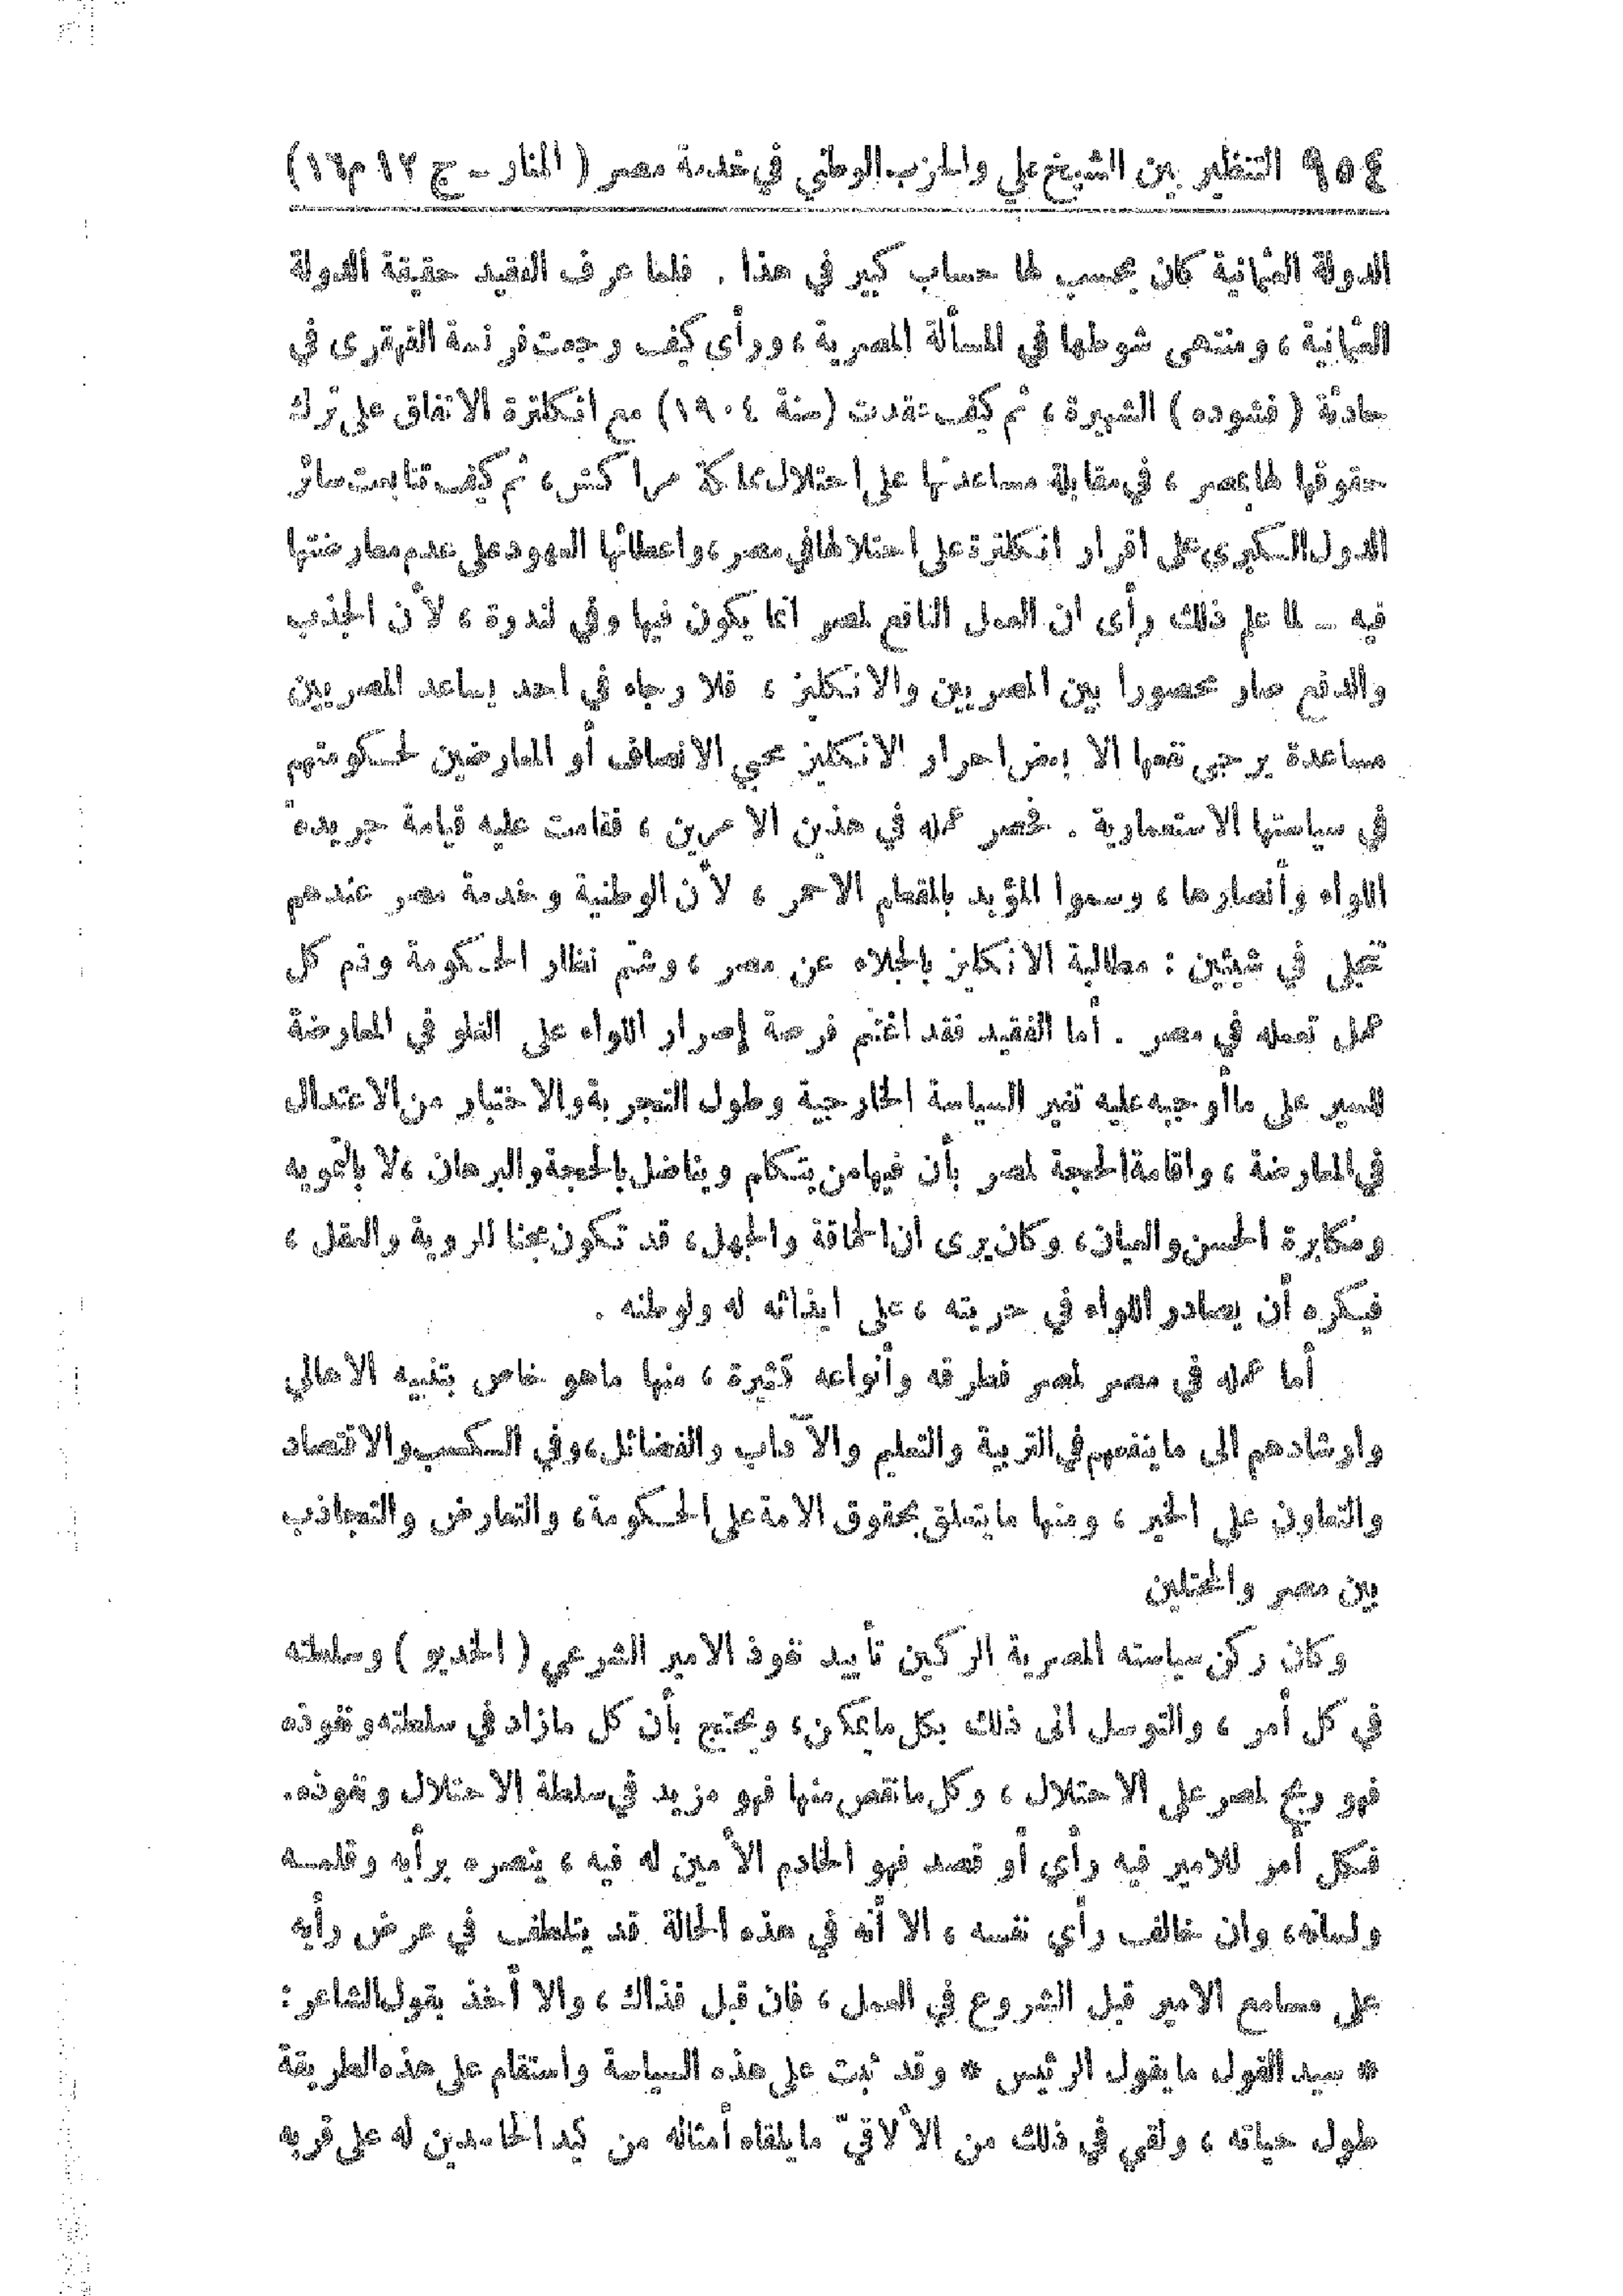 ٩٥٤ التنظير بين الشيخ علي والحزب الوطني في خدمة مصر ( المنار ــ ج ١٢ م١٦)
الدولة العثمانية كان يحسب لها حساب كبير في هذا . فلما عرف الفقيد حقيقة الدولة
العثمانية ، ومنتهى شوطها في المسألة المصرية ، ورأى كيف رجعت فرنسة القهقرى في
حادثة ( فشوده ) الشهيرة ، ثم كيف عقدت (سنة ١٩٠٤) مع انكلترة الاتفاق على ترك
حقوقها لها بمصر ، في مقابلة مساعدتها على احتلال مملكة مراكش ، ثم كيف تتابعت سائر
الدول الكبرى على اقرار انكلترة على احتلالها في مصر ، واعطائها العهود على عدم معارضتها
فيه ــ لما علم ذلك رأى ان العمل النافع لمصر انما يكون فيها وفي لندرة ، لأن الجذب
والدفع صار محصورا بين المصريين والانكليز ، فلا رجاء في احد يساعد المصريين
مساعدة يرجى نفعها الا بعض احرار الانكليز محبي الانصاف أو المعارضين لحكومتهم
في سياستها الاستعمارية . فحصر عمله في هذين الامرين ، فقامت عليه قيامة جريدة
اللواء وأنصارها ، وسموا المؤيد بالمقطم الاحمر ، لأن الوطنية وخدمة مصر عندهم
تنجلي في شيئين : مطالبة الانكليز بالجلاء عن مصر ، وشتم نظار الحكومة وذم كل
عمل تعمله في مصر . أما الفقيد فقد اغتنم فرصة إصرار اللواء على الغلو في المعارضة
للسير على ما أوجبه عليه تغير السياسة الخارجية وطول التجربة والاختبار من الاعتدال
في المعارضة ، واقامة الحجة لمصر بأن فيها من يتكلم ويناضل بالحجة والبرهان ، لا بالتمويه
ومكابرة الحس والعيان ، وكان يرى ان الحماقة والجهل ، قد تكون مجنا للروية والعقل ،
فيكره أن يصادر اللواء في حريته ، على ايذائه له ولوطنه .
أما عمله في مصر لمصر فطرقه وأنواعه كثيرة ، منها ماهو خاص بتنبيه الاهالي
وارشادهم الى ما ينفعهم في التربية والتعليم والآداب والفضائل ، وفي الكسب والاقتصاد
والتعاون على الخير ، ومنها ما يتعلق بحقوق الامة على الحكومة ، والتعارض والتجاذب
بين مصر والمحتلين
وكان ركن سياسته المصرية الركين تأييد نفوذ الامير الشرعي ( الخديو ) وسلطته
في كل أمر ، والتوسل الى ذلك بكل ما يمكن ، ويحتج بأن كل مازاد في سلطته ونفوذه
فهو ربح لمصر على الاحتلال ، وكل ما نقص منها فهو مزيد في سلطة الاحتلال ونفوذه .
فكل أمر للامير فيه رأي أو قصد فهو الخادم الأمين له فيه ، ينصره برأيه وقلمه
ولسانه ، وان خالف رأي نفسه ، الا أنه في هذه الحالة قد يتلطف في عرض رأيه
على مسامع الامير قبل الشروع في العمل ، فان قبل فذاك ، والا أخذ بقول الشاعر :
* سيد القول ما يقول الرئيس * وقد ثبت على هذه السياسة واستقام على هذه الطريقة
طول حياته ، ولقي في ذلك من الألاقيّ ما يلقاه أمثاله من كيد الحاسدين له على قربه